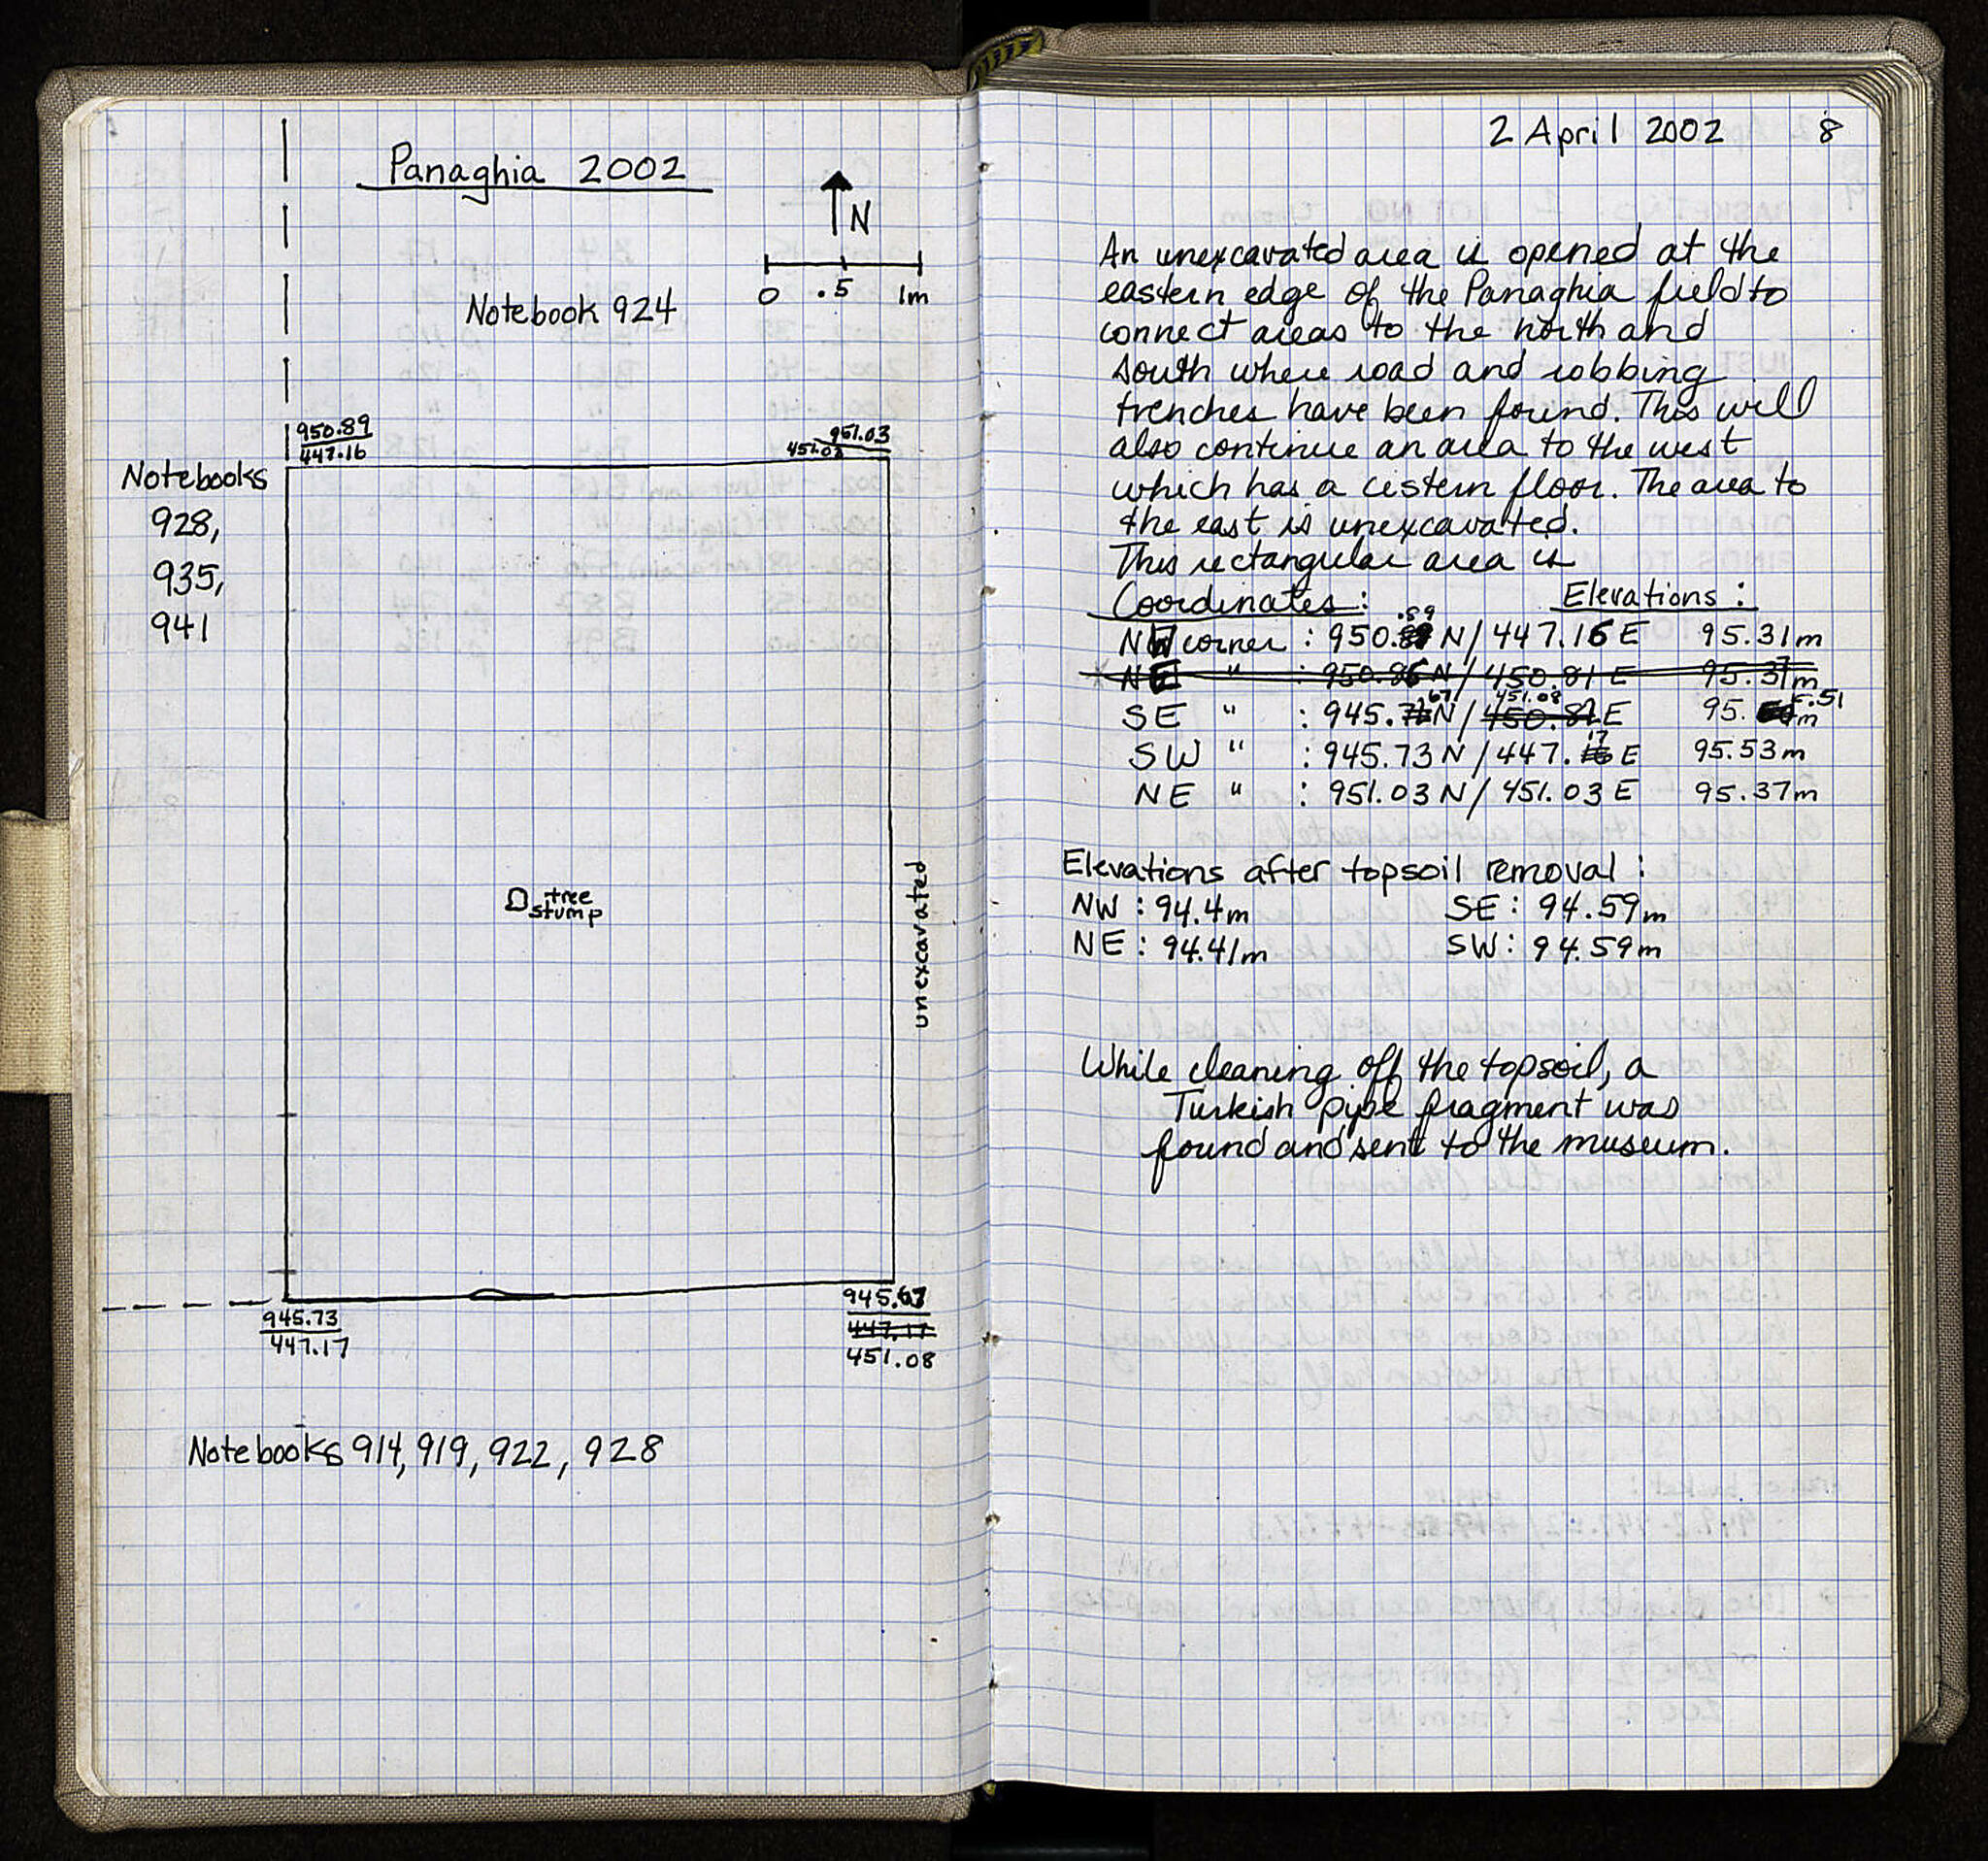 Panaghia 2002
N
0 .5 1m
Notebook 924
950.89
447.16
951.03
451.03
Notebooks
928,
935,
941
tree
stump
unexcavated
945.73
447.17
945.67
447.17
451.08
Notebooks 914, 919, 922, 928
2 April 2002 8
An unexcavated area is opened at the
eastern edge of the Panaghia field to
connect areas to the north and
south where road and robbing
trenches have been found. This will
also continue an area to the west
which has a cistern floor. The area to
the east is unexcavated.
This rectangular area is
Coordinates: Elevations:
.89
NW corner : 950. N/447.16 E 95.31m
NE " : 950.86 N/450.81 E 95.37m
.67 451.08
SE " : 945. N/450.82 E 95. .51 m
17
SW " : 945.73 N/447.16 E 95.53m
NE " : 951.03 N/451.03 E 95.37m
Elevations after topsoil removal:
NW: 94.4m SE: 94.59m
NE: 94.41m SW: 94.59m
While cleaning off the topsoil, a
Turkish pipe fragment was
found and sent to the museum.